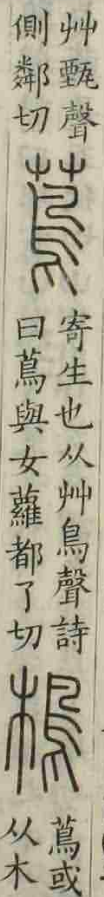 艸甄聲
側鄰切
蔦
寄生也从艸鳥聲詩
曰蔦與女蘿都了切
樢
蔦或
从木